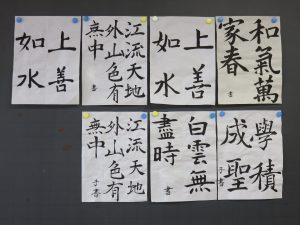 和氣萬
家春
書
上善
如水
江流天地
外山色有
無中
書
上善
如水
學積
成聖
書
白雲無
盡時
書
江流天地
外山色有
無中
書